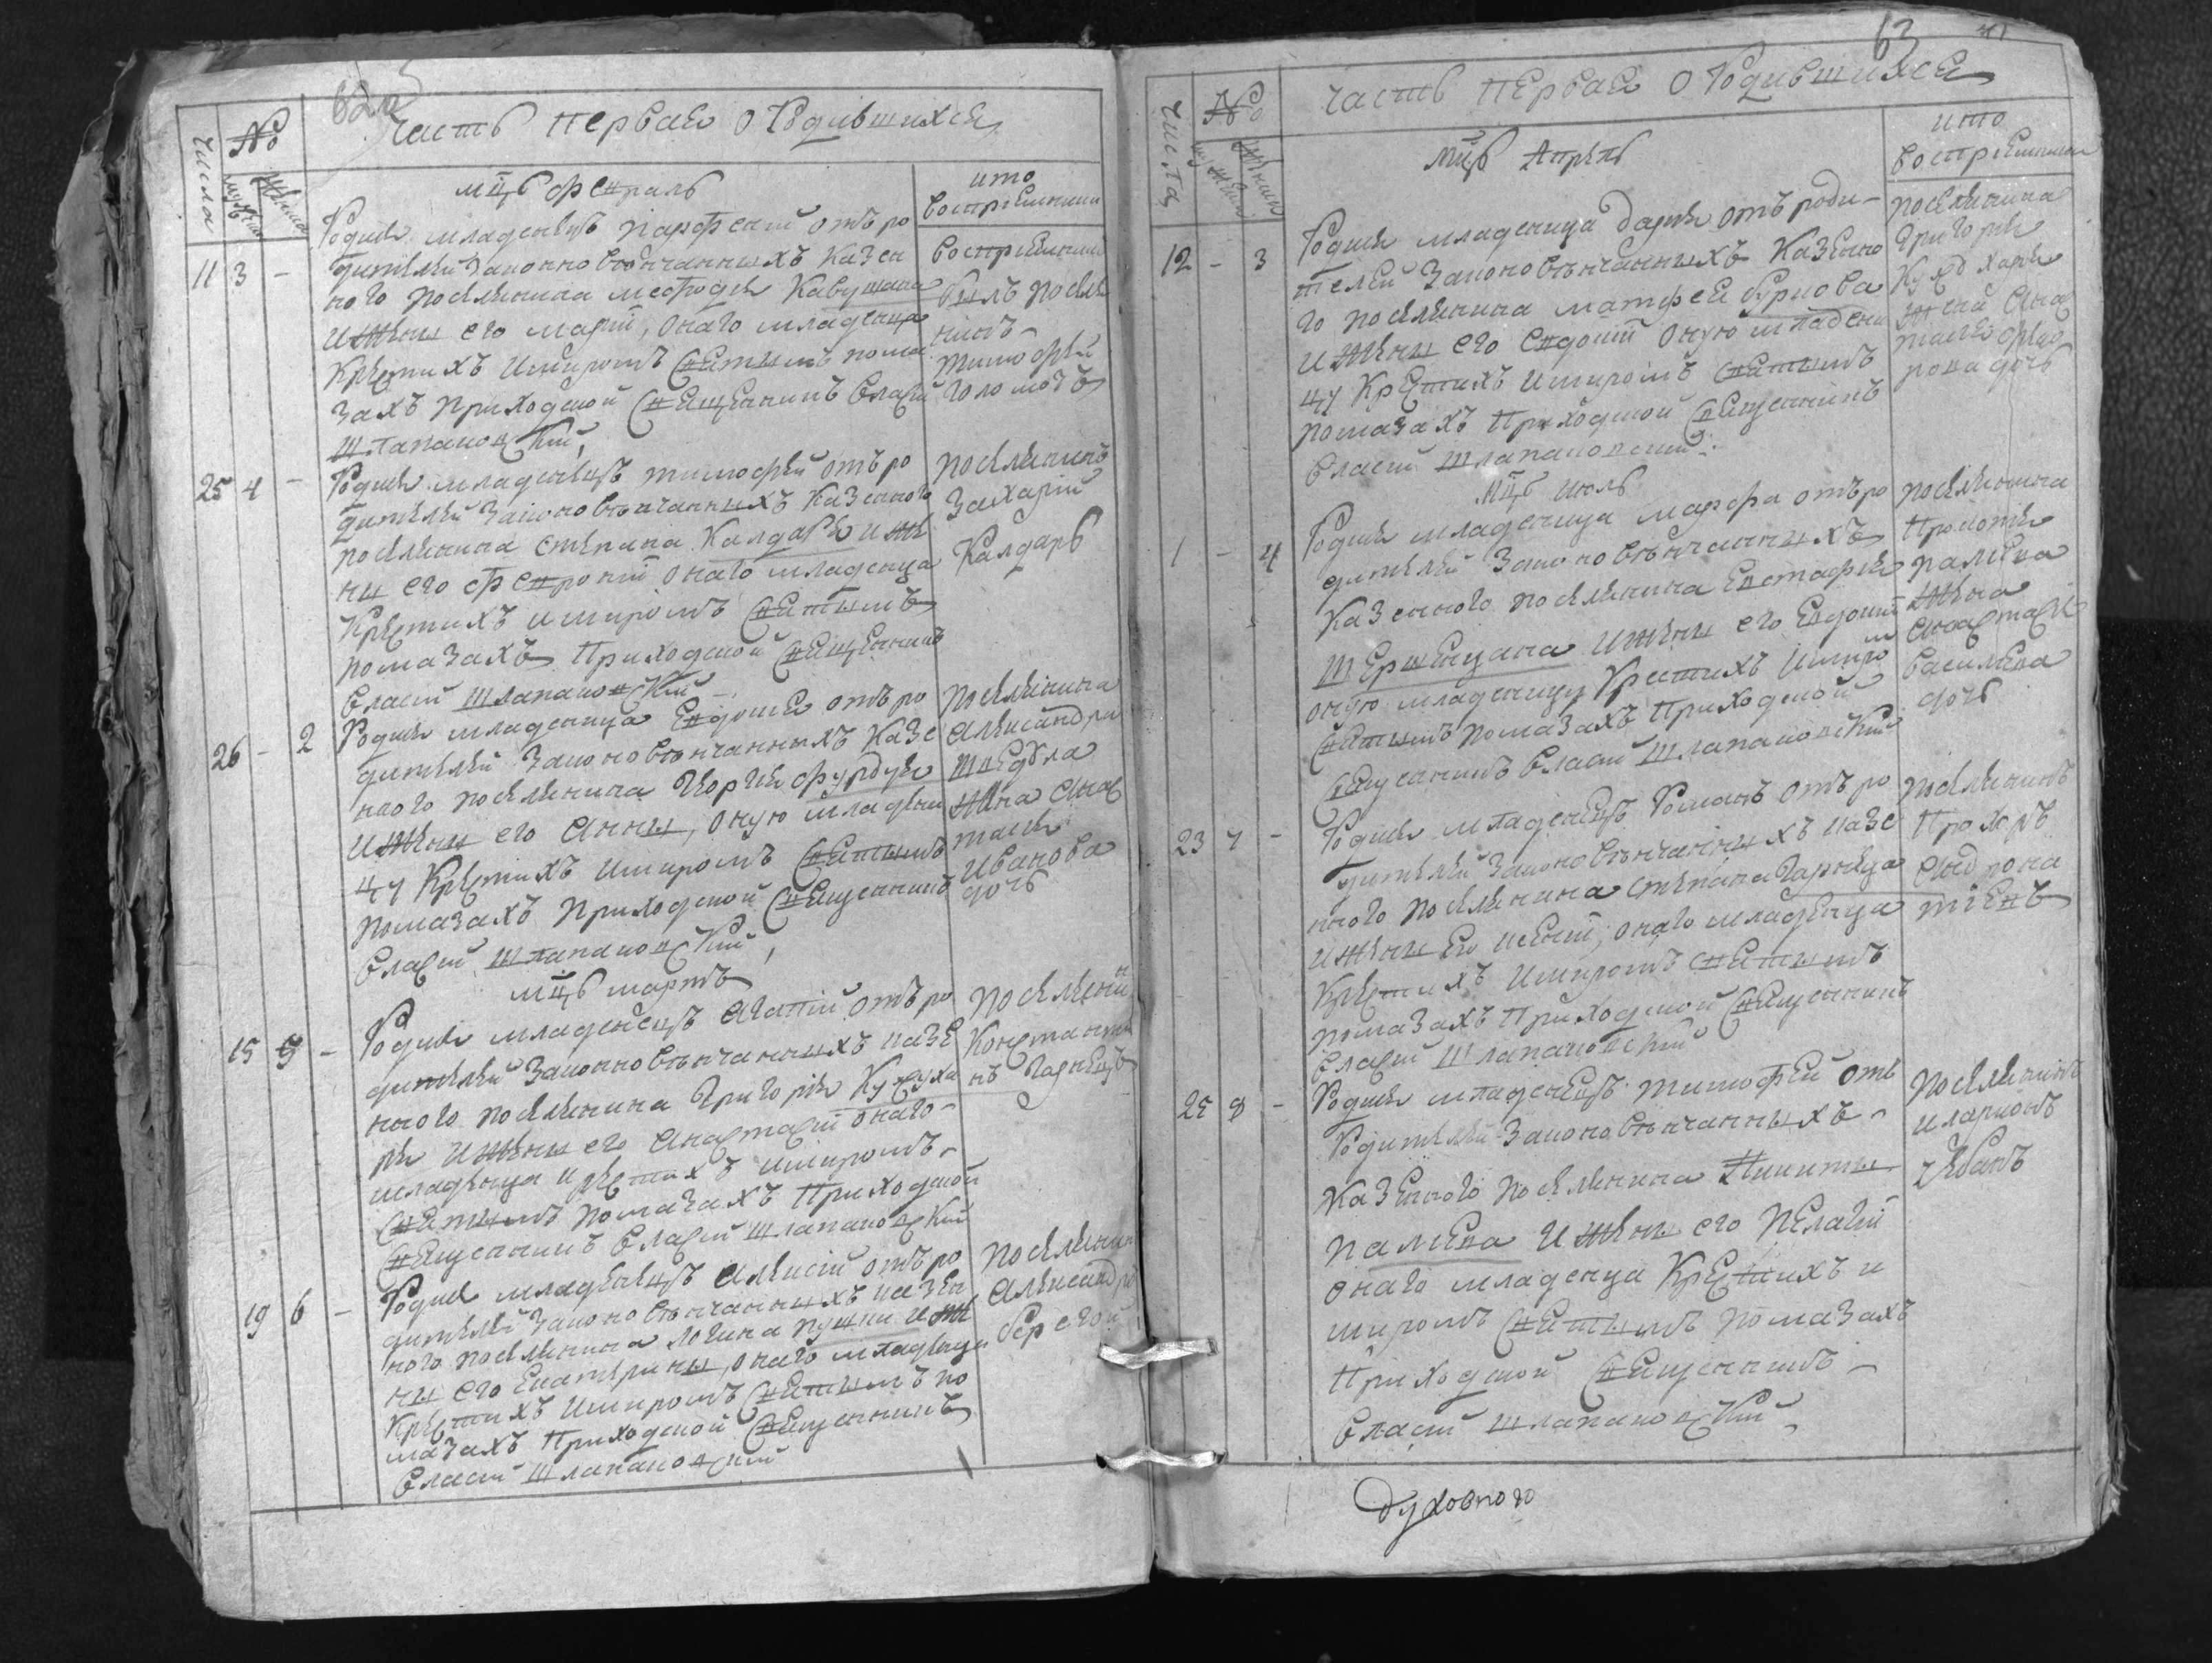 62
Часть первая о родившихся
Числа
№
мужеска
женска
мцъ февраль
кто
восприемники
11 3 -
Родися младенецъ Парфений отъ ро
дителей законно венчанныхъ казен
ного поселянина Мефодия
и жены его Марии, онаго младенца
крестихъ и миромъ святымъ пома
захъ приходской священникъ Власий
Шлапановский,
восприемникъ
былъ поселя
нинъ
Тимофей
25 4 -
Родися младенецъ Тимофей отъ ро
дителей законно венчанныхъ казенного
поселянина Степана Калдаря и же
ны его Февронии онаго младенца
крестихъ и миромъ святымъ
помазахъ приходской священникъ
Власий Шлапановский
поселянинъ
Захарий
Калдарь
26 - 2
Родися младеница Евдокия отъ ро
дителей законно венчанныхъ казе
нного поселянина Георгия Фурдуя
и жены его Анны, оную младени
цу крестихъ и миромъ святымъ
помазахъ приходской священникъ
Власий Шлапановский,
поселянина
Александра
жена Анас
тасия
Иванова
дочь
мцъ мартъ
15 5 -
Родися младенецъ Агапий отъ ро
дителей законно венчанныхъ казе
нного поселянина Григория
и жены его Анастасии онаго
младенца крестихъ и миромъ
святымъ помазахъ приходской
священникъ Власий Шлапановский
поселянинъ
Константи
нъ Гарнецъ
19 6 -
Родися младенецъ Алексий отъ ро
дителей законно венчанныхъ казен
ного поселянина Логина и же
ны его Екатерины, онаго младенца
крестихъ и миромъ святымъ по
мазахъ приходской священникъ
Власий Шлапановский
поселянин
Александръ
63
Часть первая о родившихся
Числа
№
мужеска
женска
мцъ Апрель
кто
восприемники
12 - 3
Родися младеница Дария отъ роди-
телей законно венчанныхъ казенно
го поселянина Матфея Бурлова
и жены его Евдокии оную младени
цу крестихъ и миромъ святымъ
помазахъ приходской священникъ
Власий Шлапановский.
поселянина
Григория
жена Анас
тасия
дочь
мцъ июль
1 - 4
Родися младеница Марфа отъ ро
дителей законно венчанныхъ
казенного поселянина Евстафия
и жены его Евдокии
оную младеницу крестихъ и миро
м
святымъ помазахъ приходской
священникъ Власий Шлапановский
поселянина
Прокопия
Палиева
жена
Анастасия
Васильева
дочь
23 7 -
Родися младенецъ Романъ отъ ро
дителей законно венчанныхъ казе
нного поселянина Степана Гарнеца
и жены его Ксении, онаго младенца
крестихъ и миромъ святымъ
помазахъ приходской священникъ
Власий Шлапановский
поселянинъ
Прохоръ
25 8 -
Родися младенецъ Тимофей отъ
родителей законно венчанныхъ
казенного поселянина Никиты
Палиева и жены его Пелагии
онаго младенца крестихъ и
миромъ святымъ помазахъ
приходской священникъ
Власий Шлапановский
поселянинъ
Иларионъ
Чебанъ
Духовного